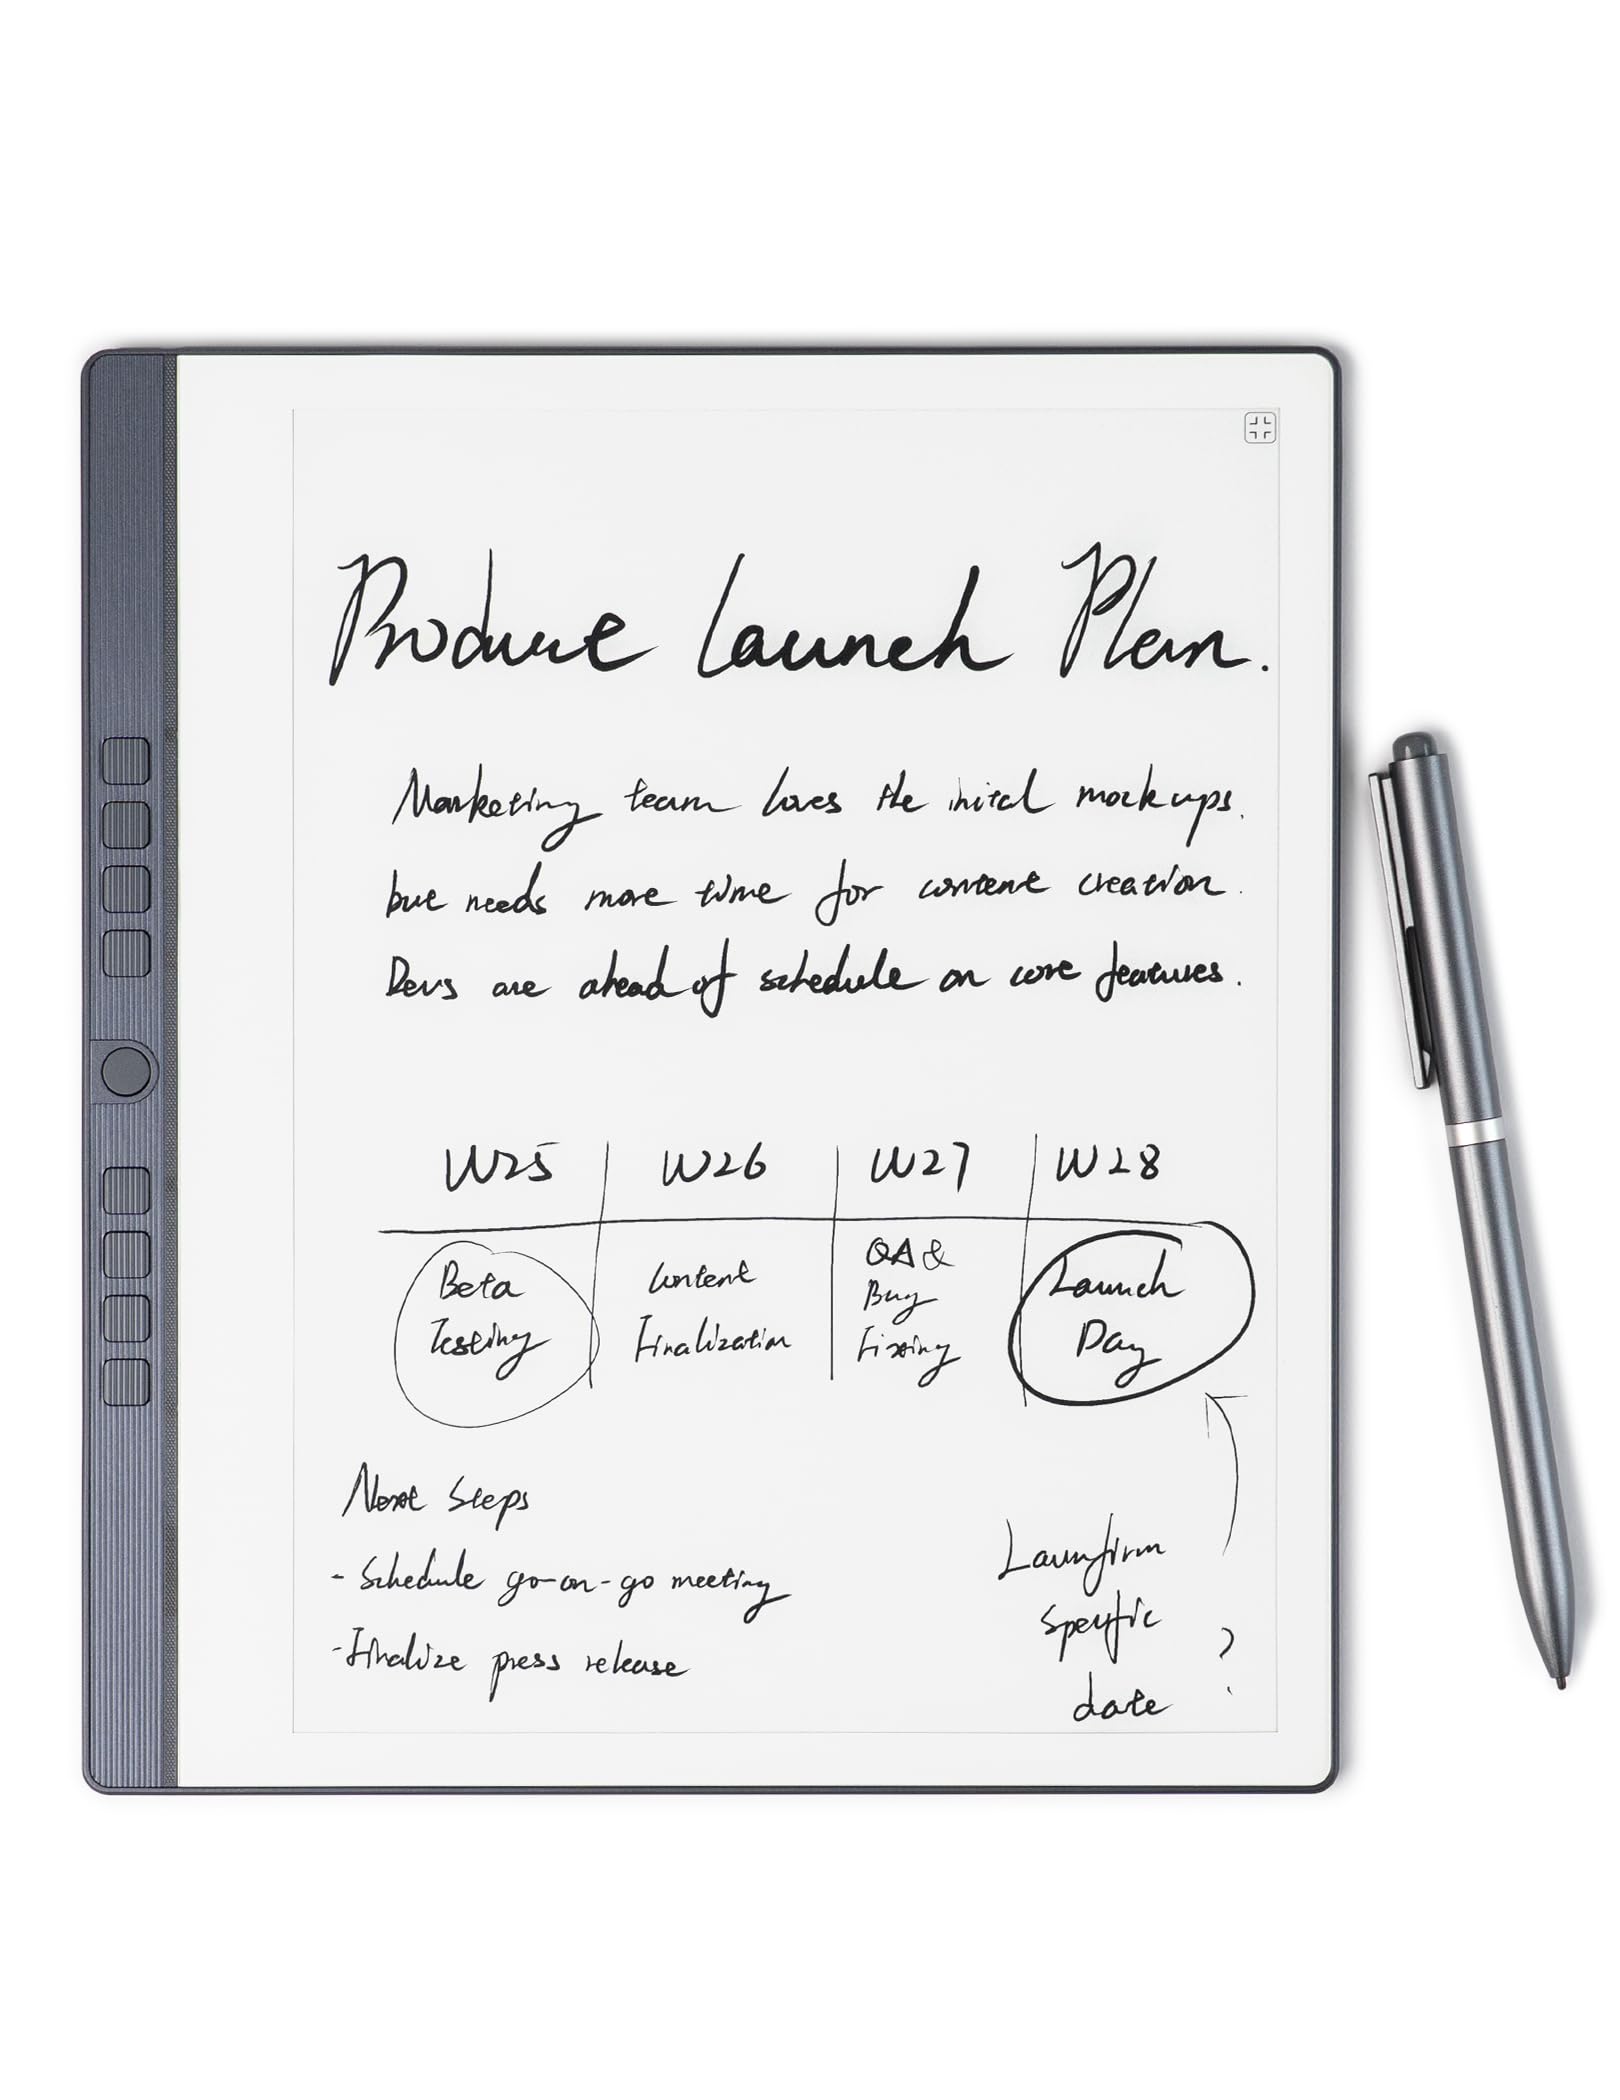 Product Launch Plan.
Marketing team loves the initial mockups.
but needs more time for content creation.
Devs are ahead of schedule on core features.
W25 W26 W27 W28
Beta Testing
Content Finalization
QA & Bug Fixing
Launch Day
Next Steps
- Schedule go-on-go meeting
- Finalize press release
specific
date ?